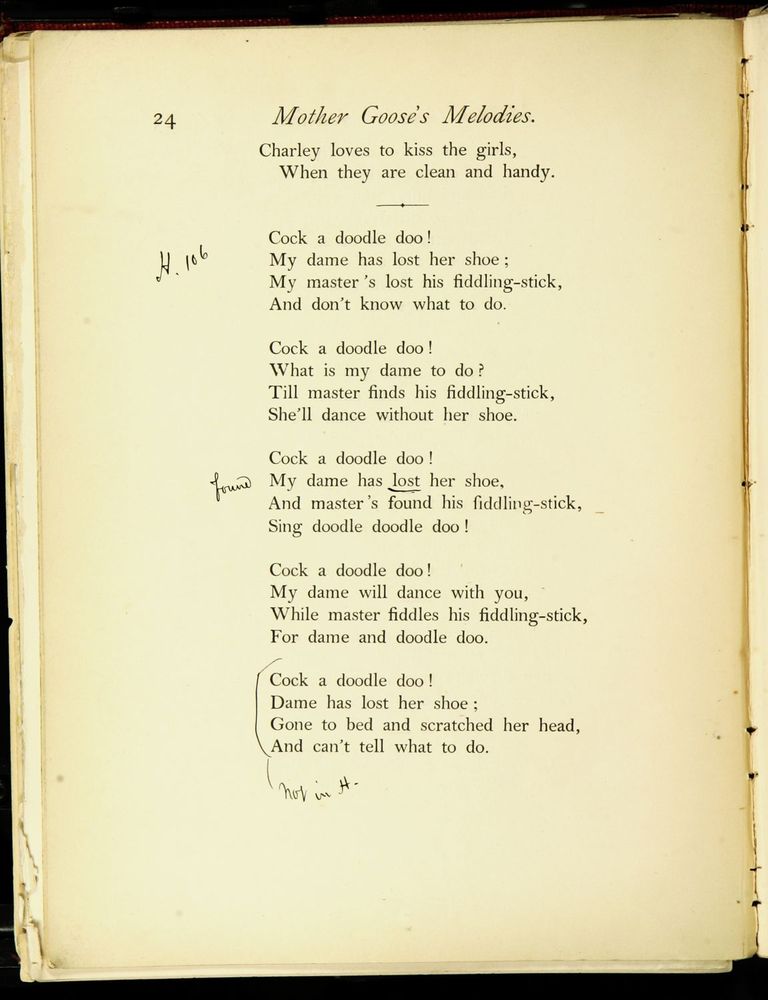 24 Mother Goose's Melodies.
Charley loves to kiss the girls,
When they are clean and handy.
Cock a doodle doo!
H. 106 My dame has lost her shoe;
My master's lost his fiddling-stick,
And don't know what to do.
Cock a doodle doo!
What is my dame to do?
Till master finds his fiddling-stick,
She'll dance without her shoe.
Cock a doodle doo!
found My dame has lost her shoe,
And master's found his fiddling-stick,
Sing doodle doodle doo!
Cock a doodle doo!
My dame will dance with you,
While master fiddles his fiddling-stick,
For dame and doodle doo.
Cock a doodle doo!
Dame has lost her shoe;
Gone to bed and scratched her head,
And can't tell what to do.
not in H.